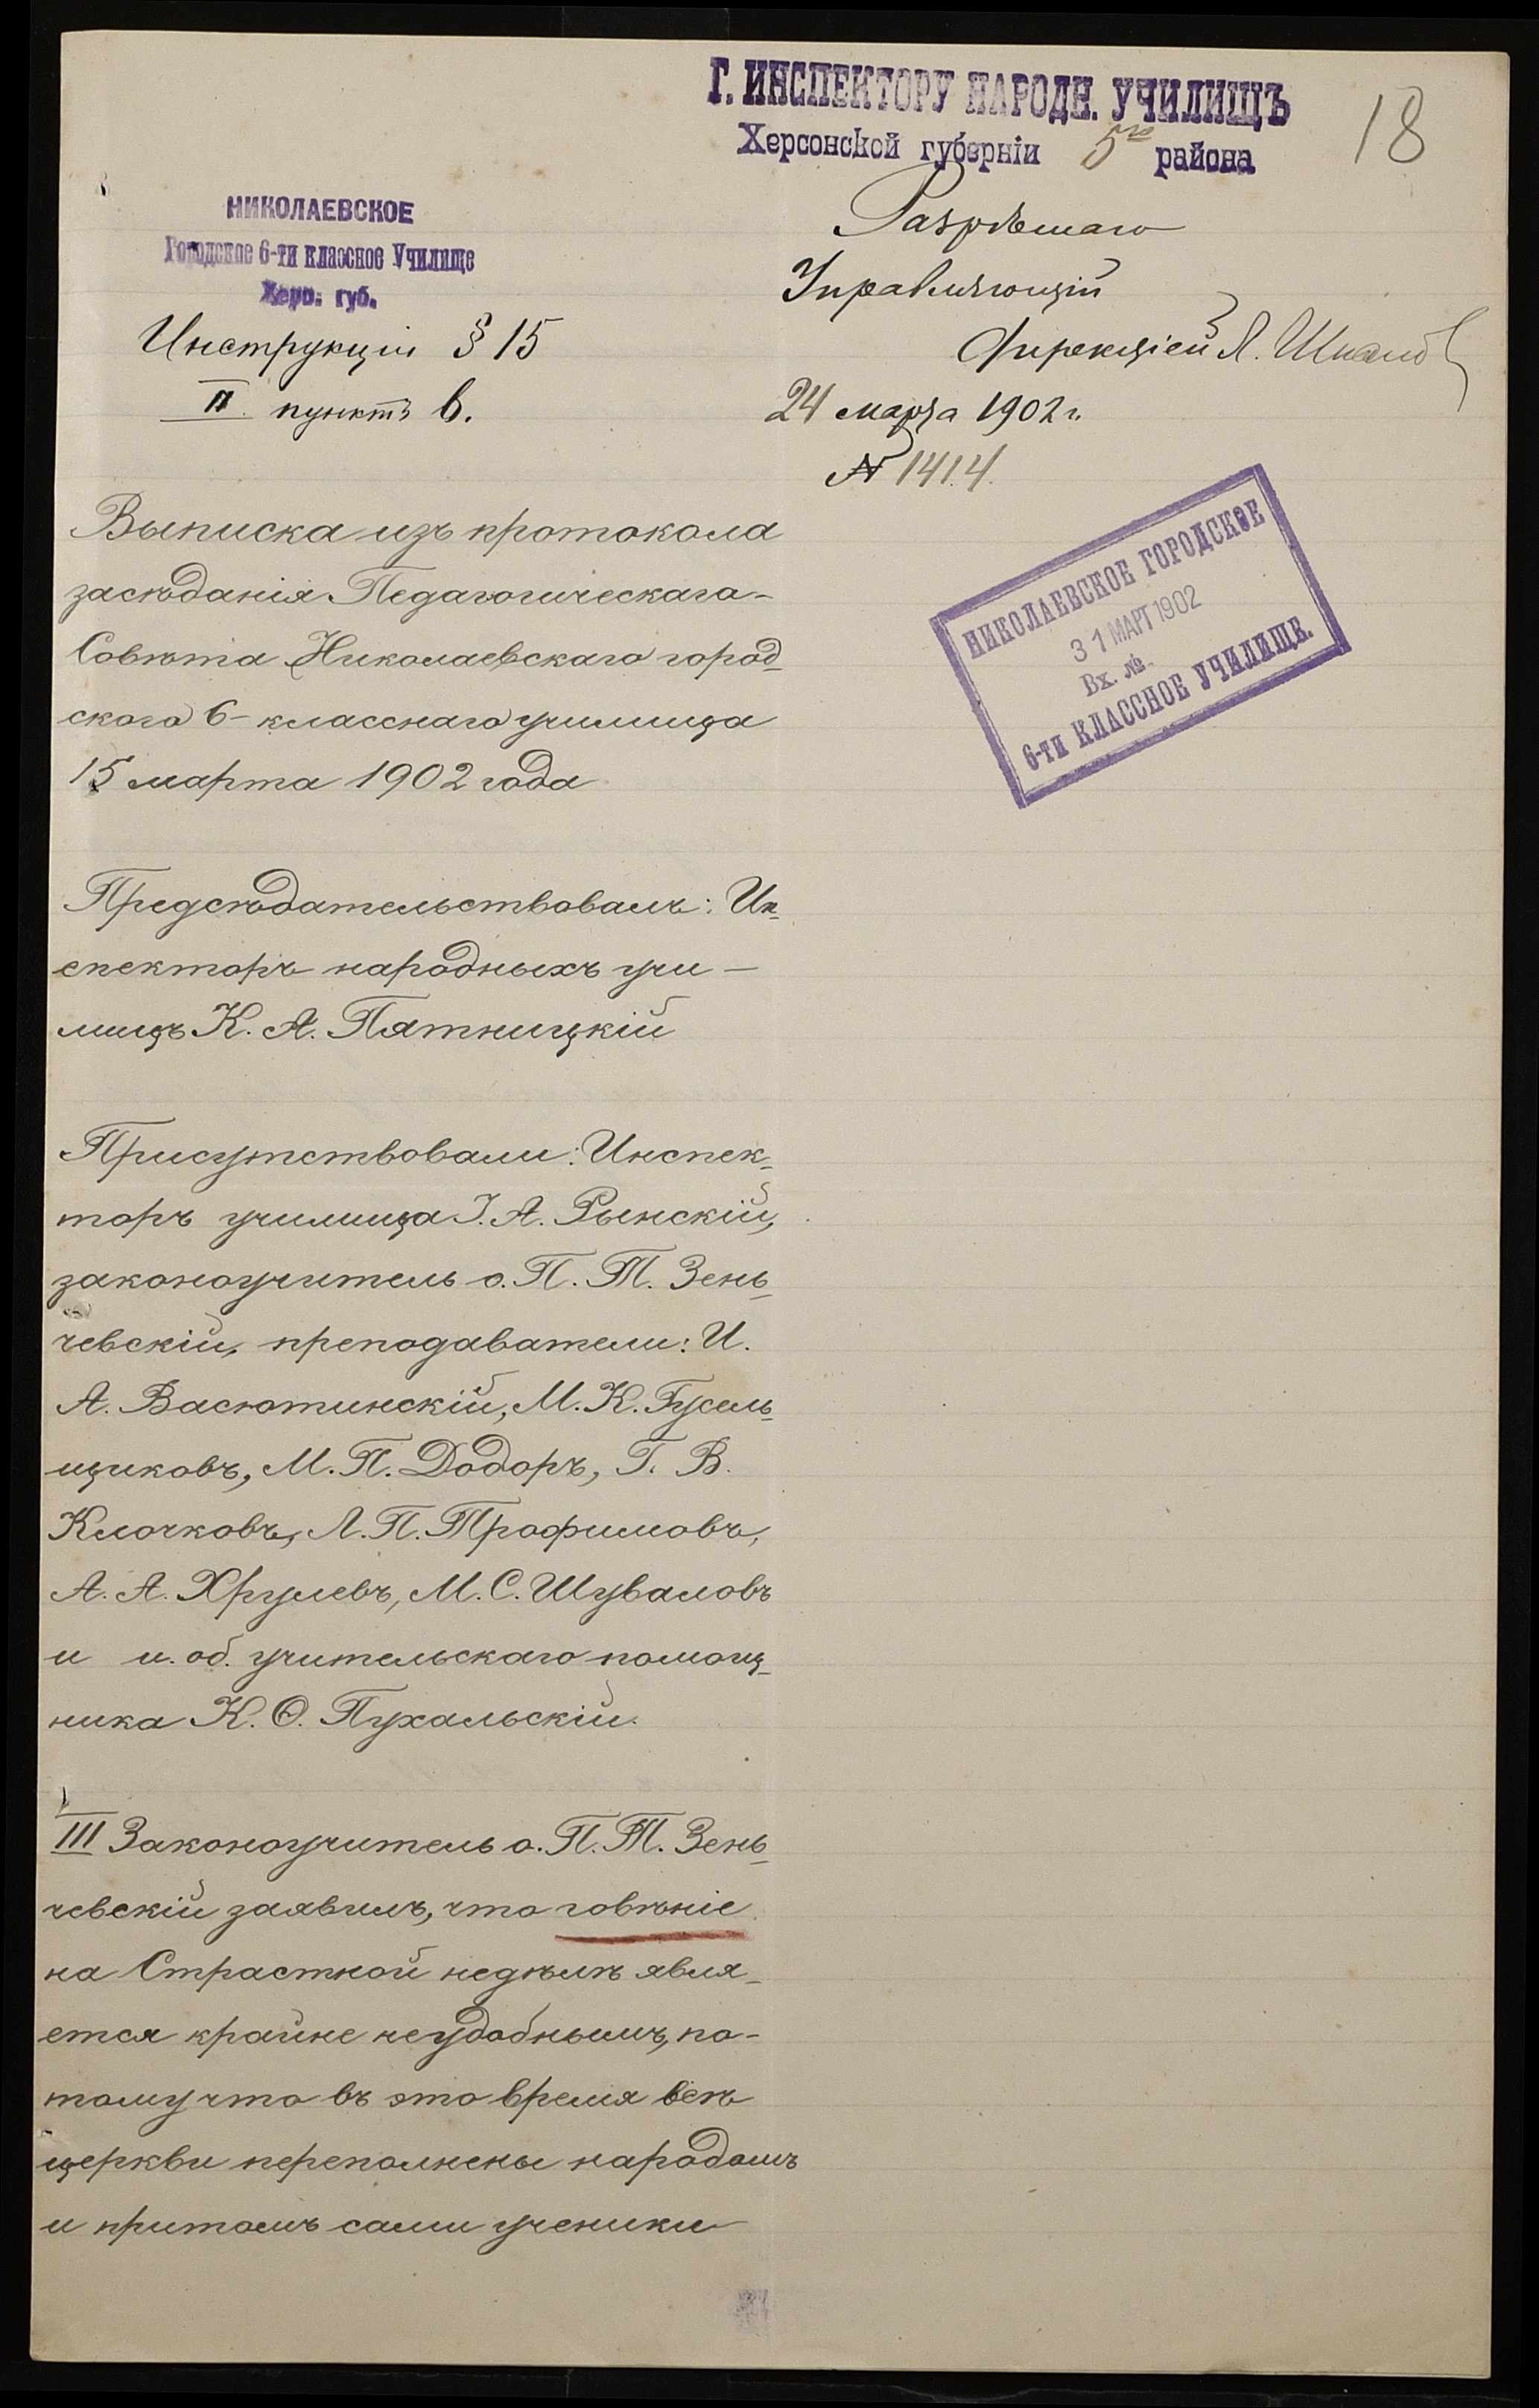 Г. ИНСПЕКТОРУ НАРОДН. УЧИЛИЩЪ
Херсонской губерніи 5го района
18
НИКОЛАЕВСКОЕ
Городское 6-ти классное Училище
Херс. губ.
Инструкціи § 15
II пунктъ в.
Разрѣшаю
Управляющій
Дирекціей
24 марта 1902 г.
№ 1414.
НИКОЛАЕВСКОЕ ГОРОДСКОЕ
31 МАРТ 1902
Вх. №
6-ти КЛАССНОЕ УЧИЛИЩЕ.
Выписка изъ протокола
засѣданія Педагогическаго
Совѣта Николаевскаго город-
ского 6-классного училища
15 марта 1902 года
Предсѣдательствовалъ: Ин-
спекторъ народныхъ учи-
лищъ К. А. Пятницкій
Присутствовали: Инспек-
торъ училища І. А. Рынскій,
законоучитель о. П. Т. Зень-
чевскій, преподаватели: И.
А. Васютинскій, М. К. Гусель-
щиковъ, М. П. Додоръ, Г. В.
Клочковъ, Л. П. Трофимовъ,
А. А. Хрулевъ, М. С. Шуваловъ
и и. об. учительскаго помощ-
ника К. Ѳ. Пухальскій.
III Законоучитель о. П. Т. Зень-
чевскій заявилъ, что говѣніе
на Страстной недѣлѣ явля-
ется крайне неудобнымъ, по-
тому что въ это время всѣ
церкви переполнены народомъ
и притомъ сами ученики